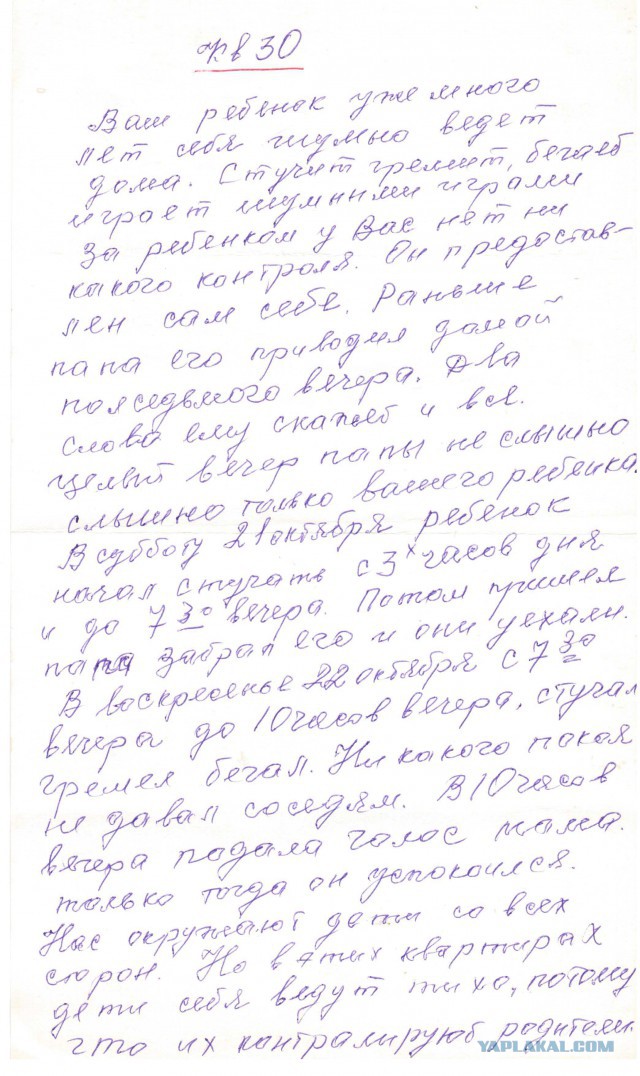 Кв 30
Ваш ребенок уже много
лет себя шумно ведет
дома. Стучит гремит, бегает
играет шумными играми
За ребенком у Вас нет ни
какого контроля. Он предостав-
лен сам себе. Раньше
папа его приводил домой
полседьмого вечера. Два
слова ему скажет и все.
Целый вечер папы не слышно
слышно только вашего ребенка.
В субботу 21 октября ребенок
начал стучать с 3х часов дня
и до 7 30 вечера. Потом пришел
папа забрал его и они уехали.
В воскресенье 22 октября с 7 30
вечера до 10 часов вечера, стучал
гремел бегал. Ни какого покоя
не давал соседям. В 10 часов
вечера падала голос мама.
только тогда он успокоился.
Нас окружают дети со всех
сторон. Но в этих квартирах
дети себя ведут тихо, потому
что их контралируют родители.
YAPLAKAL.COM